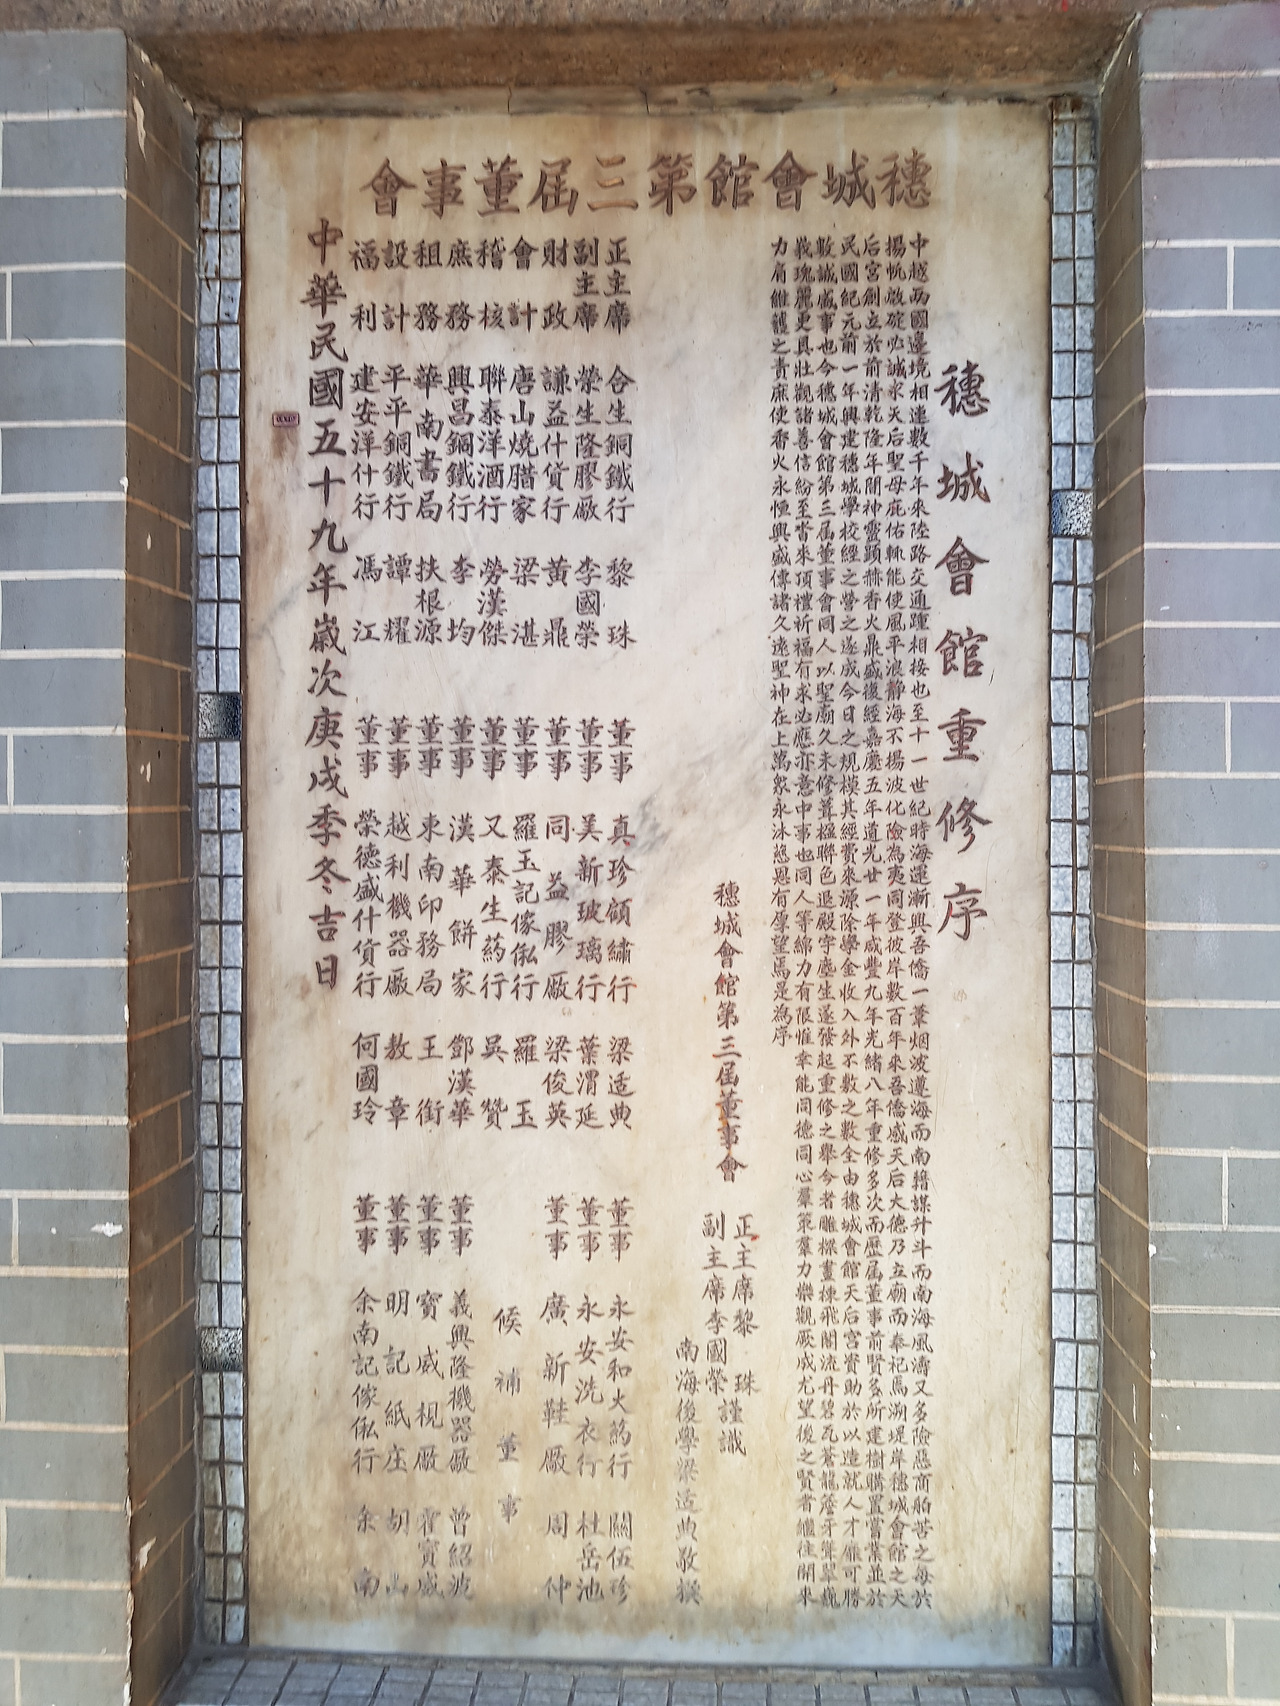 穗城會館第三屆董事會
穗城會館重修序
中越兩國邊境相連數千年來陸路交通踵相接也至十一世紀時海運漸興吾僑一葦烟波遵海而南籍謀升斗而南海風濤又多險惡商舶苦之每於
揚帆啟碇必誠求天后聖母庇佑輒能使風平浪靜海不揚波化險為夷同登彼岸數百年來吾僑感天后大德乃立廟而奉祀焉溯堤岸穗城會館之天
后宮創立於前清乾隆年間神靈顕赫香火鼎盛後經嘉慶五年道光廿一年咸豐九年光緒八年重修多次而歷屆董事前賢多所建樹購置嘗業並於
民國紀元前一年興建穗城學校經之營之遂成今日之規模其經費來源除學金收入外不敷之數全由穗城會館天后宮資助於以造就人才靡可勝
數誠盛事也今穗城會館第三屆董事會同人以聖廟久未修葺楹聯色退殿宇塵生遂發起重修之舉今者雕樑畫棟飛閣流丹碧瓦蒼龍簷牙聳翠巍
峩瑰麗更具壯觀諸善信紛至沓來頂禮祈福有求必應亦意中事也同人等綿力有限惟幸能同德同心羣策羣力樂觀厥成尤望後之賢者繼往開來
力肩維護之責庶使香火永恒興盛傳諸久遠聖神在上萬衆永沐慈恩有厚望焉是為序
穗城會館第三屆董事會
正主席黎 珠
副主席李國榮 謹識
南海後學梁适典敬撰
正主席 合生銅鐵行 黎 珠 董事 真珍顧繡行 梁适典 董事 永安和火葯行 關伍珍
副主席 榮生隆膠廠 李國榮 董事 美新玻璃行 葉渭延 董事 永安洗衣行 杜岳池
財政 謙益什貨行 黃 鼎 董事 同益膠廠 梁俊英 董事 廣新鞋廠 周 仲
會計 唐山燒腊家 梁 湛 董事 羅玉記傢俬行 羅 玉
稽核 聯泰洋酒行 勞漢傑 董事 又泰生葯行 吳 贊 候補董事
庶務 興昌鋼鐵行 李 均 董事 漢華餅家 鄧漢華 董事 義興隆機器廠 曾紹波
租務 華南書局 扶根源 董事 東南印務局 王 銜 董事 寶威梘廠 霍寶威
設計 平平銅鐵行 譚 耀 董事 越利機器廠 敖 章 董事 明記紙庄 胡
福利 建安洋什行 馮 江 董事 榮德盛什貨行 何國玲 董事 余南記傢俬行 余 南
中華民國五十九年歲次庚戌季冬吉日